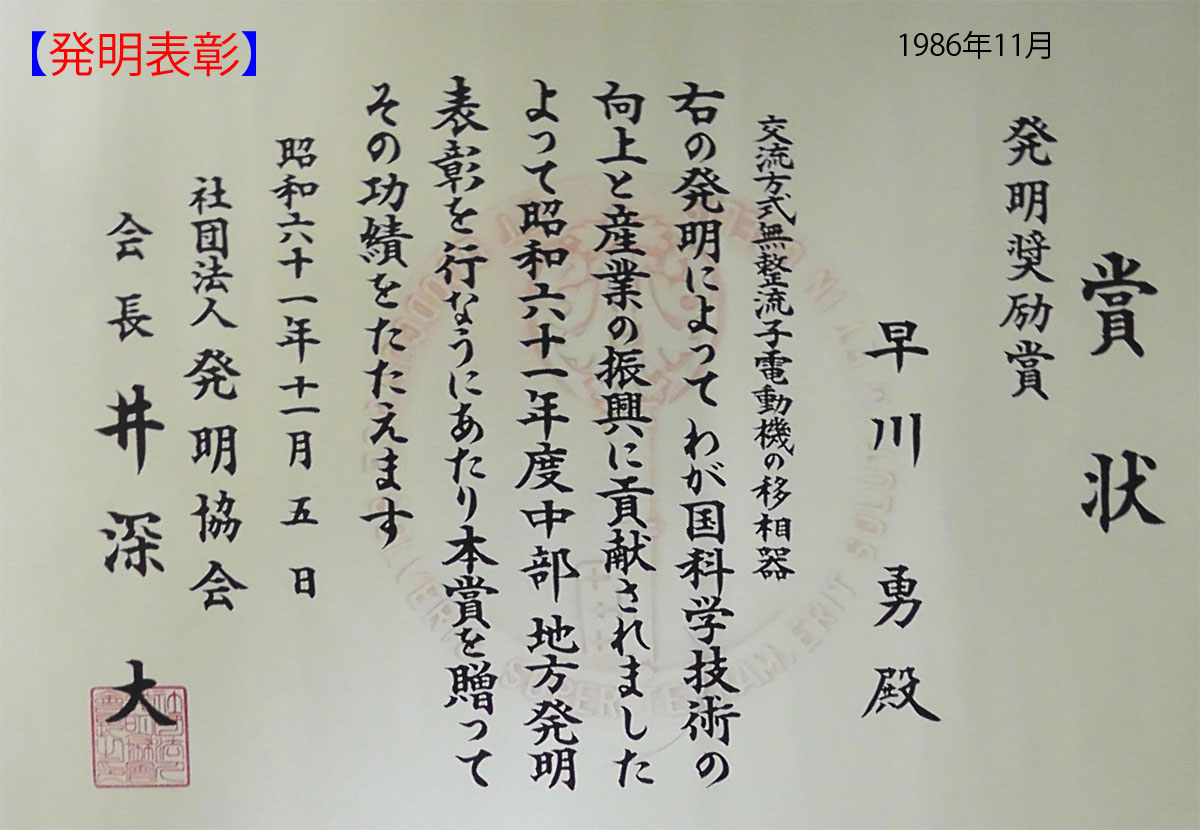 【発明表彰】
1986年11月
賞状
発明奨励賞
早川勇殿
交流方式無整流子電動機の移相器
右の発明によってわが国科学技術の
向上と産業の振興に貢献されました
よって昭和六十一年度中部地方発明
表彰を行なうにあたり本賞を贈って
その功績をたたえます
昭和六十一年十一月五日
社団法人発明協会
会長井深大